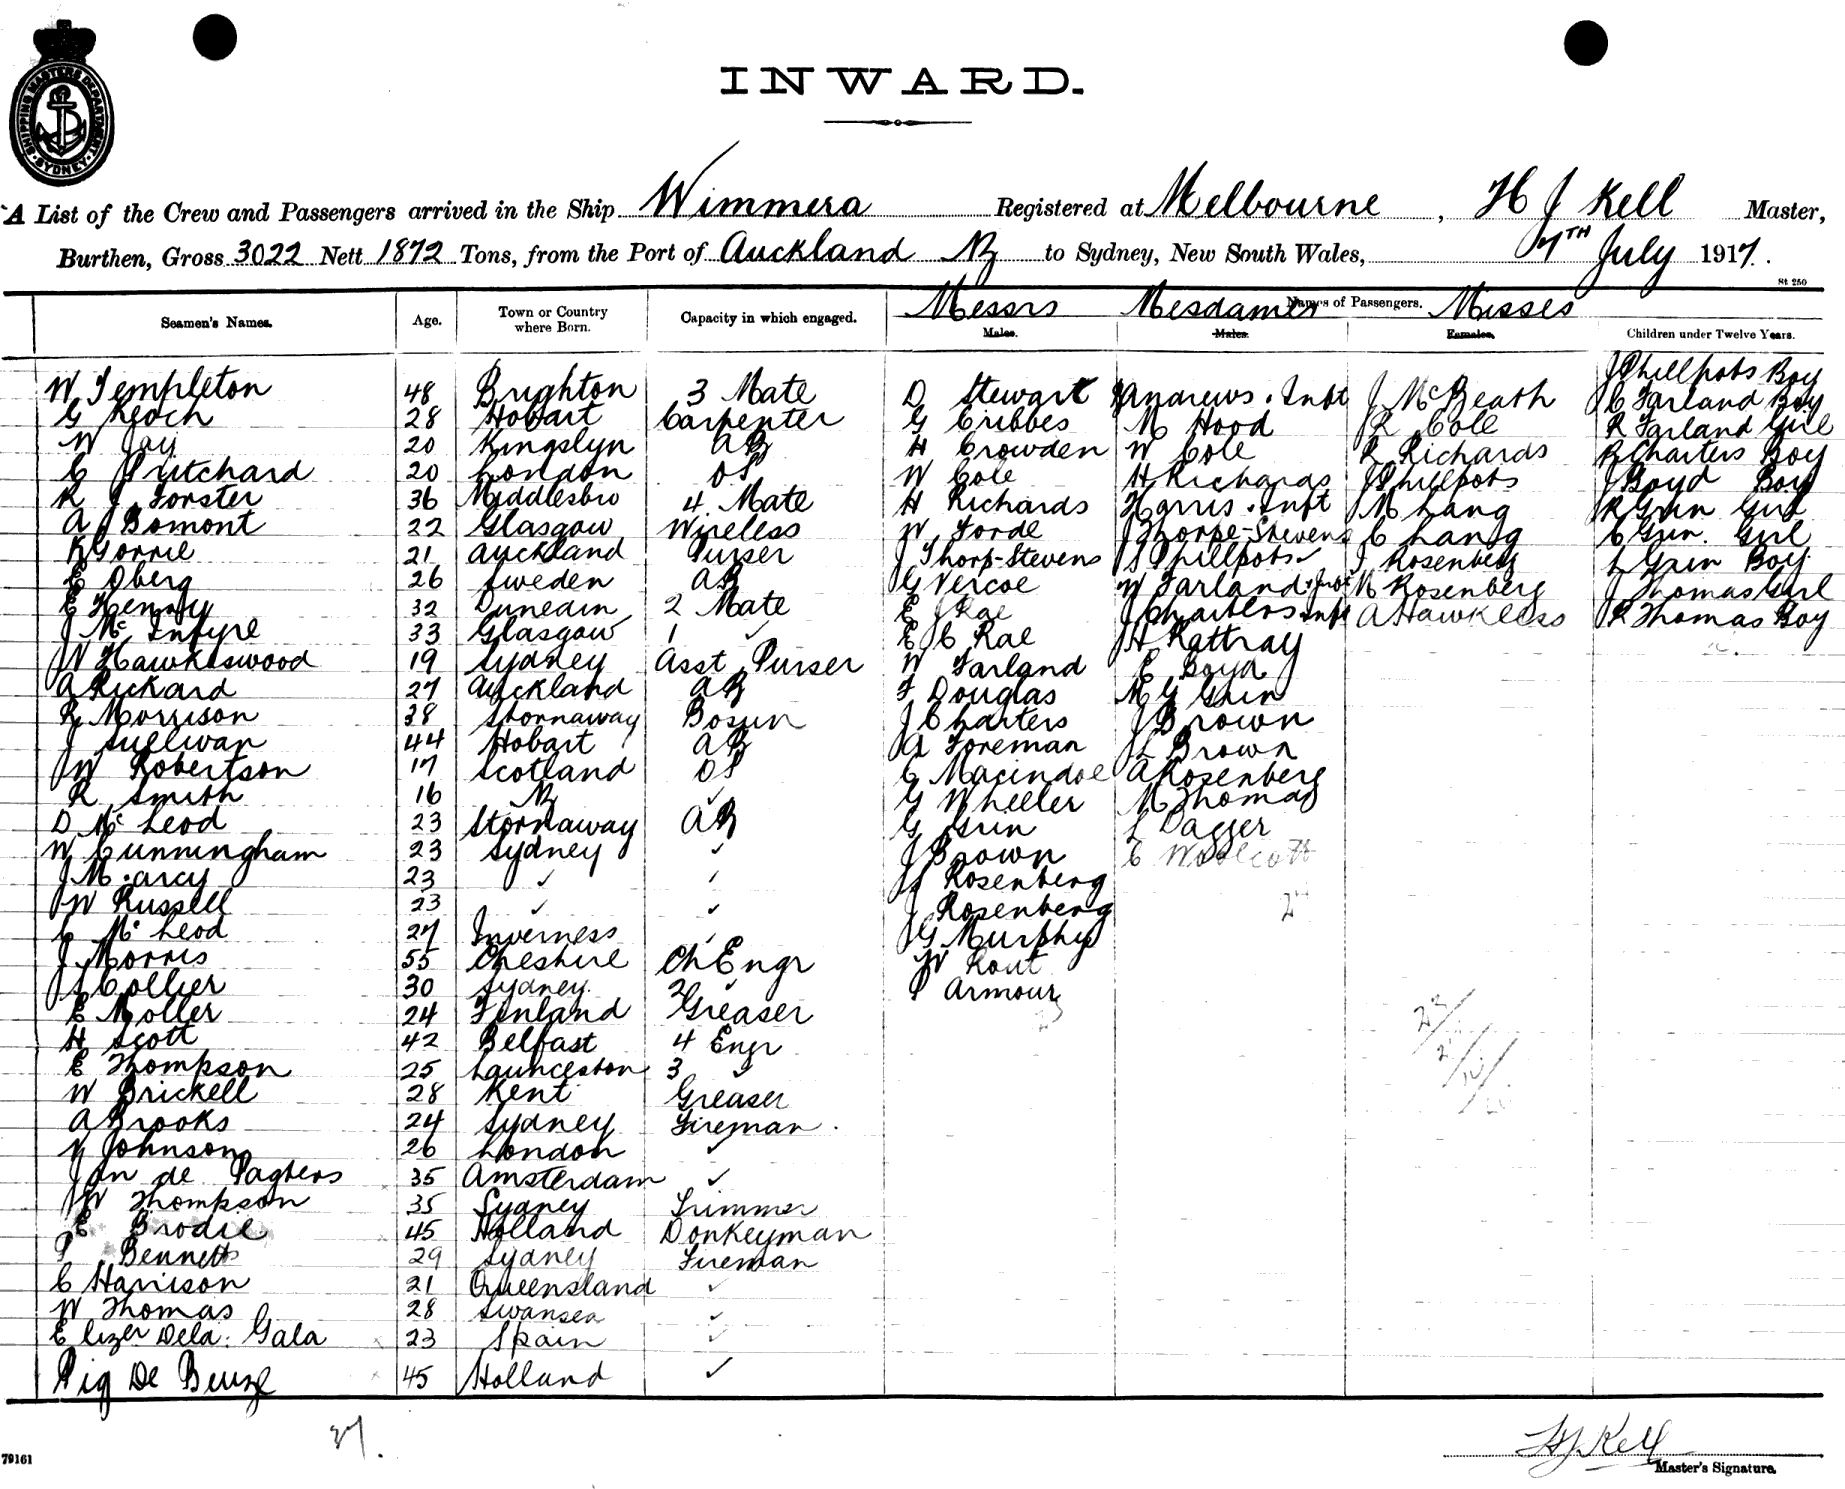 INWARD.
SHIPPING MASTERS DEPARTMENT SYDNEY
A List of the Crew and Passengers arrived in the Ship Wimmera Registered at Melbourne, H J Kell Master,
Burthen, Gross 3022 Nett 1872 Tons, from the Port of Auckland NZ to Sydney, New South Wales, 7TH July 1917.
St 250
Seamen's Names. Age. Town or Country where Born. Capacity in which engaged. Names of Passengers.
Messrs Mesdames Misses
Males. Males. Females. Children under Twelve Years.
J Phillpots Boy
W Templeton 48 Brighton 3 Mate D Stewart Andrews. Inft J McBeath C Farland Boy
G Keoch 28 Hobart Carpenter G Cribbes M Hood R Cole R Farland Girl
W Jay 20 Kingslyn AB H Crowden W Cole R Richards R Charters Boy
C Pritchard 20 London OS W Cole H Richards J Phillpots J Boyd Boy
R J Forster 36 Middlesbro 4 Mate H Richards Harris. Inft M Lang R Grin Girl
A J Bomont 22 Glasgow Wireless W Forde J Thorpe-Stevens C Lang C Grin. Girl
R Gorrie 21 Auckland Purser J Thorp-Stevens S Phillpots J Rosenberg L Grin Boy
E Oberg 26 Sweden AB G Vercoe W Farland. Inft R Rosenberg J Thomas Girl
E Kenny 32 Dunedin 2 Mate E J Rae J Charters Inft A Hawkless R Thomas Boy
J McIntyre 33 Glasgow 1 ✓ E C Rae J H Rattray
W Hawkeswood 19 Sydney Asst Purser W Farland E Boyd
A Rickard 27 Auckland AB F Douglas M G Grin
R Morrison 38 Stornaway Bosun J Charters J Brown
J Sullivan 44 Hobart AB A Foreman J L Brown
JW Robertson 17 Scotland OS C Macindoe A Rosenberg
R Smith 16 NZ ✓ G Wheeler M Thomas
D McLeod 23 Stornaway AB G Grin L Dagger
W Cunningham 23 Sydney ✓ J Brown C Woolcott
J M arcy 23 ✓ ✓ Rosenberg
JW Russell 23 ✓ ✓ J Rosenberg
C McLeod 27 Inverness ✓ J G Murphy
J Morris 55 Cheshire Ch Engr W Rout
J S Collier 30 Sydney. 2 ✓ P Armour
E Moller 24 Finland Greaser 23
H Scott 42 Belfast 4 Engr
E Thompson 25 Launceston 3 ✓
W Brickell 28 Kent Greaser
A Brooks 24 Sydney Fireman
Johnson 26 London ✓
Jan de Pagters 35 Amsterdam ✓
JW Thompson 35 Sydney Trimmer
E Brodie 45 Holland Donkeyman
P Bennett 29 Sydney Fireman
C Harrison 21 Queensland ✓
W Thomas 28 Swansea ✓
Elizer Dela. Gala 23 Spain ✓
Pig De Beuze 45 Holland ✓
37.
HJ Kell
Master's Signature.
79161